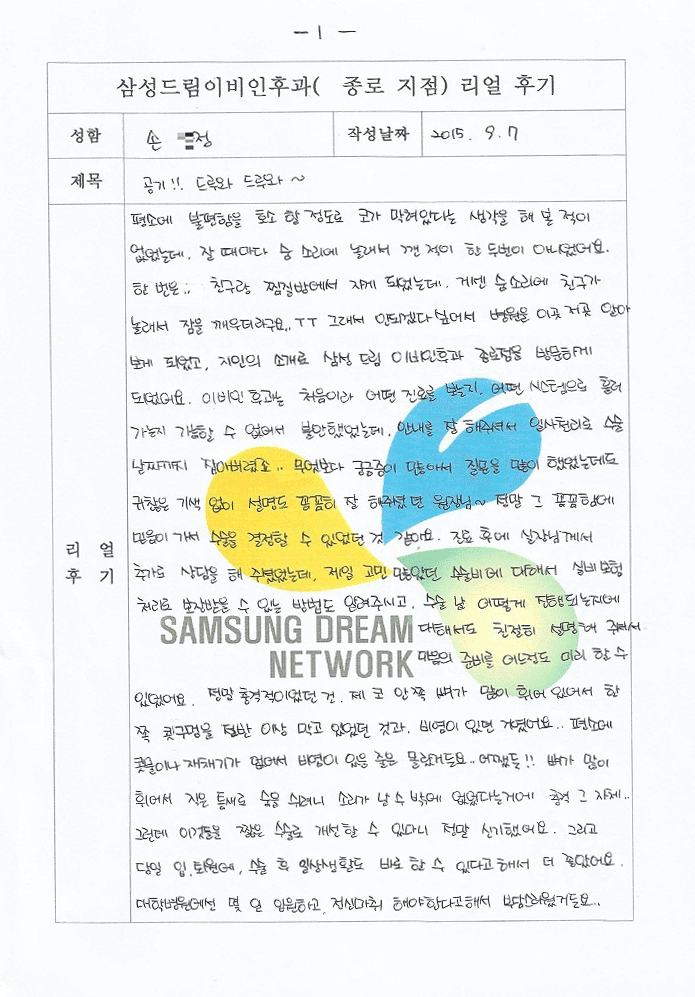 - 1 -
삼성드림이비인후과( 종로 지점) 리얼 후기
성함 손 정 작성날짜 2015. 9. 7
제목 공기!! 드루와 드루와~
리 얼
후 기
평소에 불편함을 호소 할 정도로 코가 막혀있다는 생각을 해 본 적이
없었는데, 잘 때마다 숨 소리에 놀래서 깬 적이 한 두번이 아니었어요.
한 번은.. 친구랑 찜질방에서 자게 되었는데, 거센 숨소리에 친구가
놀래서 잠을 깨우더라구요.. TT 그래서 안되겠다 싶어서 병원을 이곳 저곳 알아
보게 되었고, 지인의 소개로 삼성 드림 이비인후과 종로점을 방문하게
되었어요. 이비인후과는 처음이라 어떤 진료를 보는지, 어떤 시스템으로 흘러
가는지 가늠할 수 없어서 불안했었는데, 안내를 잘 해주셔서 일사천리로 수술
날짜까지 잡아버렸죠.. 무엇보다 궁금증이 많아서 질문을 많이 했었는데도
귀찮은 기색 없이 설명도 꼼꼼히 잘 해주셨던 원장님~ 정말 그 꼼꼼함에
믿음이 가서 수술을 결정할 수 있었던 것 같아요. 진료 후에 실장님께서
추가로 상담을 해 주셨었는데, 제일 고민 많았던 수술비에 대해서 실비보험
처리로 보장받을 수 있는 방법도 알려주시고, 수술 날 어떻게 진행되는지에
대해서도 친절히 설명해 주셔서
마음의 준비를 어느정도 미리 할 수
SAMSUNG DREAM
NETWORK
있었어요. 정말 충격적이었던 건, 제 코 안쪽 뼈가 많이 휘어 있어서 한
쪽 콧구멍을 절반 이상 막고 있었던 것과, 비염이 있던 거였어요.. 평소에
콧물이나 재채기가 없어서 비염이 있을 줄은 몰랐거든요.. 어쨌든!! 뼈가 많이
휘어서 작은 틈새로 숨을 쉬려니 소리가 날 수 밖에 없었다는거에 충격 그 자체..
그런데 이것들을 짧은 수술로 개선할 수 있다니 정말 신기했어요. 그리고
당일 입.퇴원에, 수술 후 일상생활도 바로 할 수 있다고 해서 더 좋았어요.
대학병원에선 몇 일 입원하고, 전신마취 해야한다고해서 부담스러웠거든요..